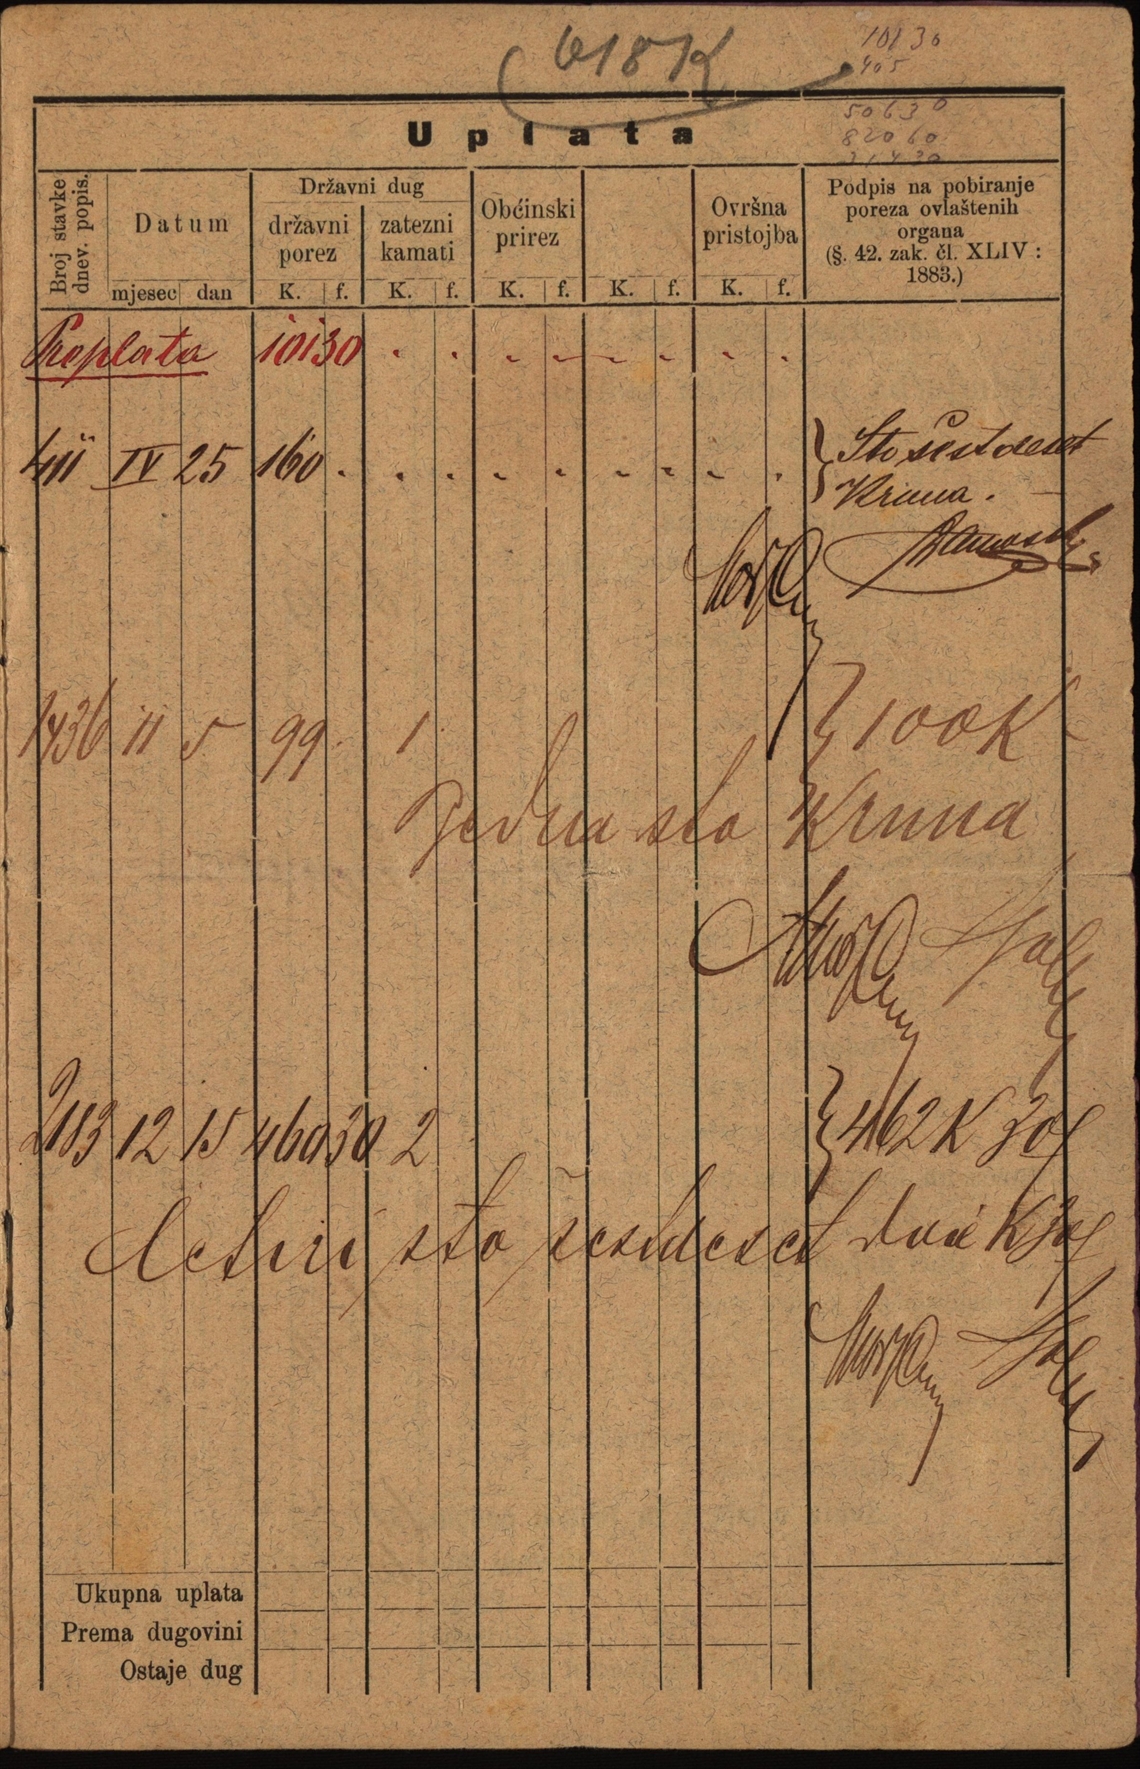 618K
10130
405
50630
82060
Uplata
Broj stavke dnev. popis.
Datum
mjesec dan
Državni dug
državni porez
zatezni kamati
Obćinski prirez
Ovršna pristojba
Podpis na pobiranje
poreza ovlaštenih
organa
(§. 42. zak. čl. XLIV :
1883.)
K. f. K. f. K. f. K. f. K. f.
Preplata 101 30 . . . . . . . .
IV 25 160 . . . . . . . . . } Sto šestdeset
Kruna .
1436 11 5 99 . 1 . } 100K
Jedna sto Kruna
2183 12 15 460 30 2 } 462K 30f
Četiri sto šestdeset dvie K 30f
Ukupna uplata
Prema dugovini
Ostaje dug